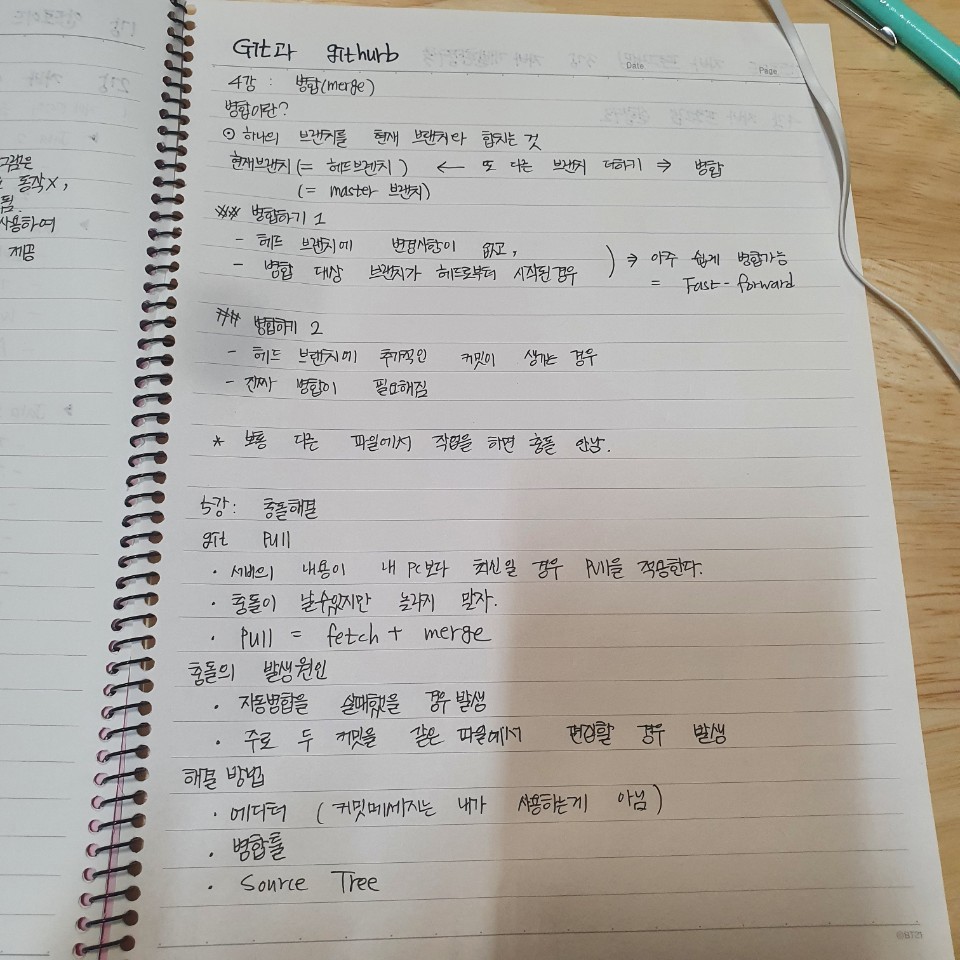 그램은
동작X,
됨.
사용하여
제공
Git과 githurb
Date
Page
4강 : 병합(merge)
병합이란?
⊙ 하나의 브랜치를 현재 브랜치와 합치는 것
현재브랜치(= 헤드브랜치) ← 또 다른 브랜치 더하기 ⇒ 병합
(= master 브랜치)
## 병합하기 1
- 헤드 브랜치에 변경사항이 없고,
- 병합 대상 브랜치가 헤드로부터 시작된경우
) ⇒ 아주 쉽게 병합가능
= Fast-forward
## 병합하기 2
- 헤드 브랜치에 추가적인 커밋이 생기는 경우
- 진짜 병합이 필요해짐
* 보통 다른 파일에서 작업을 하면 충돌 안남.
5강: 충돌해결
git Pull
· 서버의 내용이 내 PC보다 최신일 경우 Pull을 적용한다.
· 충돌이 날수있지만 놀라지 말자.
· Pull = fetch + merge
충돌의 발생원인
· 자동병합을 실패했을 경우 발생
· 주로 두 커밋을 같은 파일에서 편집할 경우 발생
해결 방법
· 에디터 (커밋메세지는 내가 사용하는게 아님)
· 병합툴
· Source Tree
©BT21